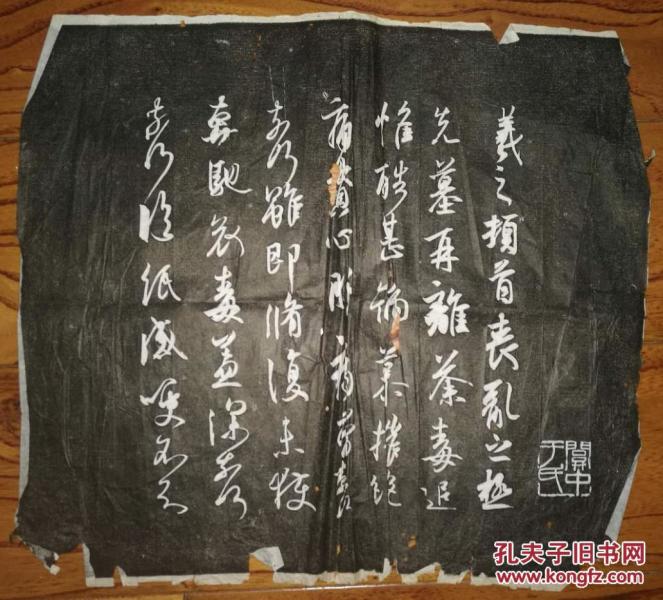 羲之頓首喪亂之極
先墓再離荼毒追
惟酷甚號慕摧絕
痛貫心肝痛當奈何
奈何雖即脩復未獲
奔馳哀毒益深奈何
奈何臨紙感哽不知
關中
于氏
孔夫子旧书网
www.kongfz.com